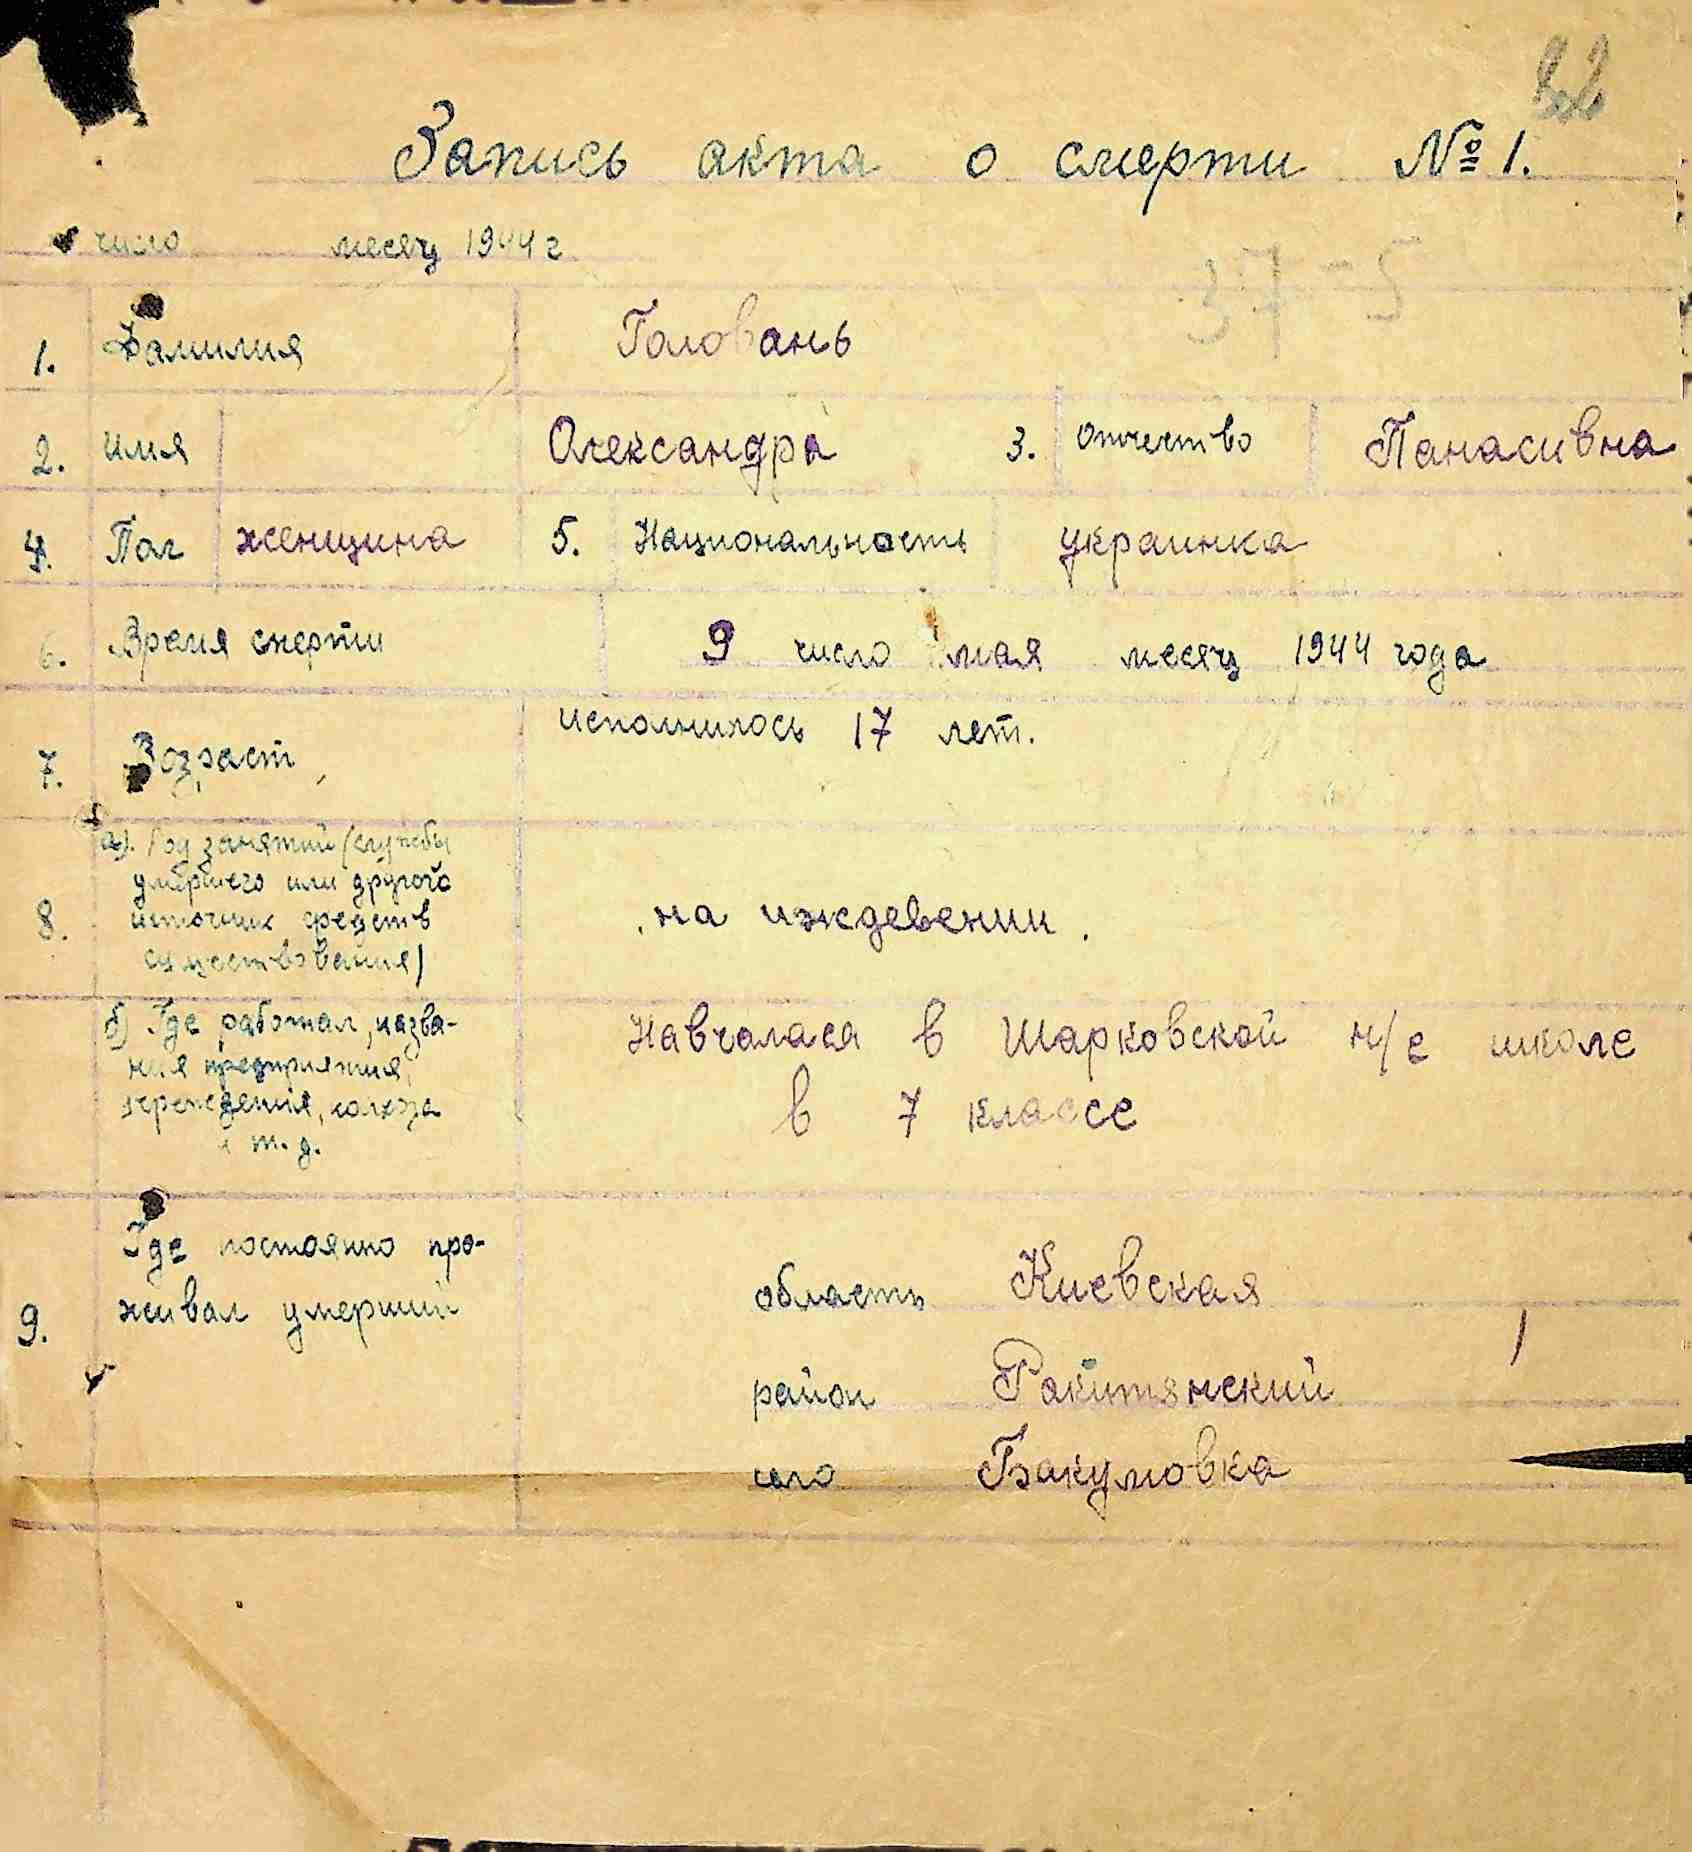 Запись акта о смерти № 1.
число месяц 1944 г
37-5
1. Фамилия Головань
2. Имя Олександра 3. Отчество Панасивна
4. Пол женщина 5. Национальность украинка
6. Время смерти 9 число мая месяц 1944 года
7. Возраст исполнилось 17 лет.
а). Род занятий (службы
умершего или другого
8. источник средств на иждевении.
существования)
б) Где работал, назва- Навчалася в Шарковской н/с школе
ния предприятия,
учреждения, колхоза в 7 классе
и т.д.
Где постоянно про-
9. живал умерший область Киевская
район Ракитянский
село Бакумовка